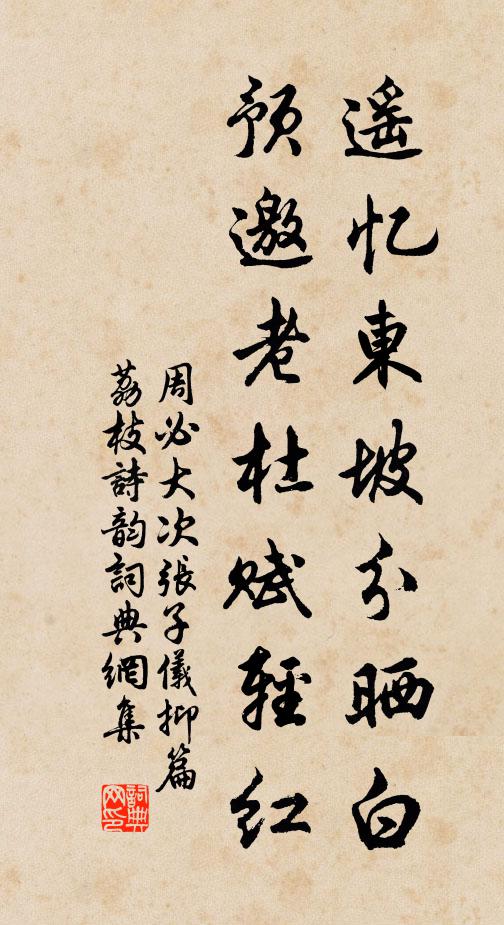 遥忆東坡分晒白
预邀老杜赋輕红
周必大次張子儀抑篇
荔枝詩韵詞典網集
詞典网印